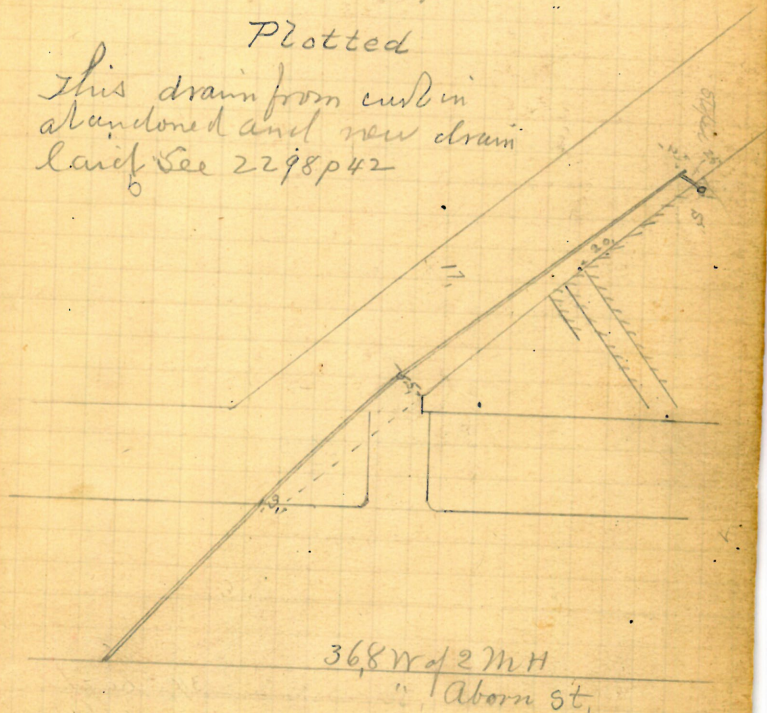 Plotted
This drain from curb in
abandoned and new drain
laid See 2298p42
17,
20
5,
3,
36,8 W of 2 MH
" Aborn St,